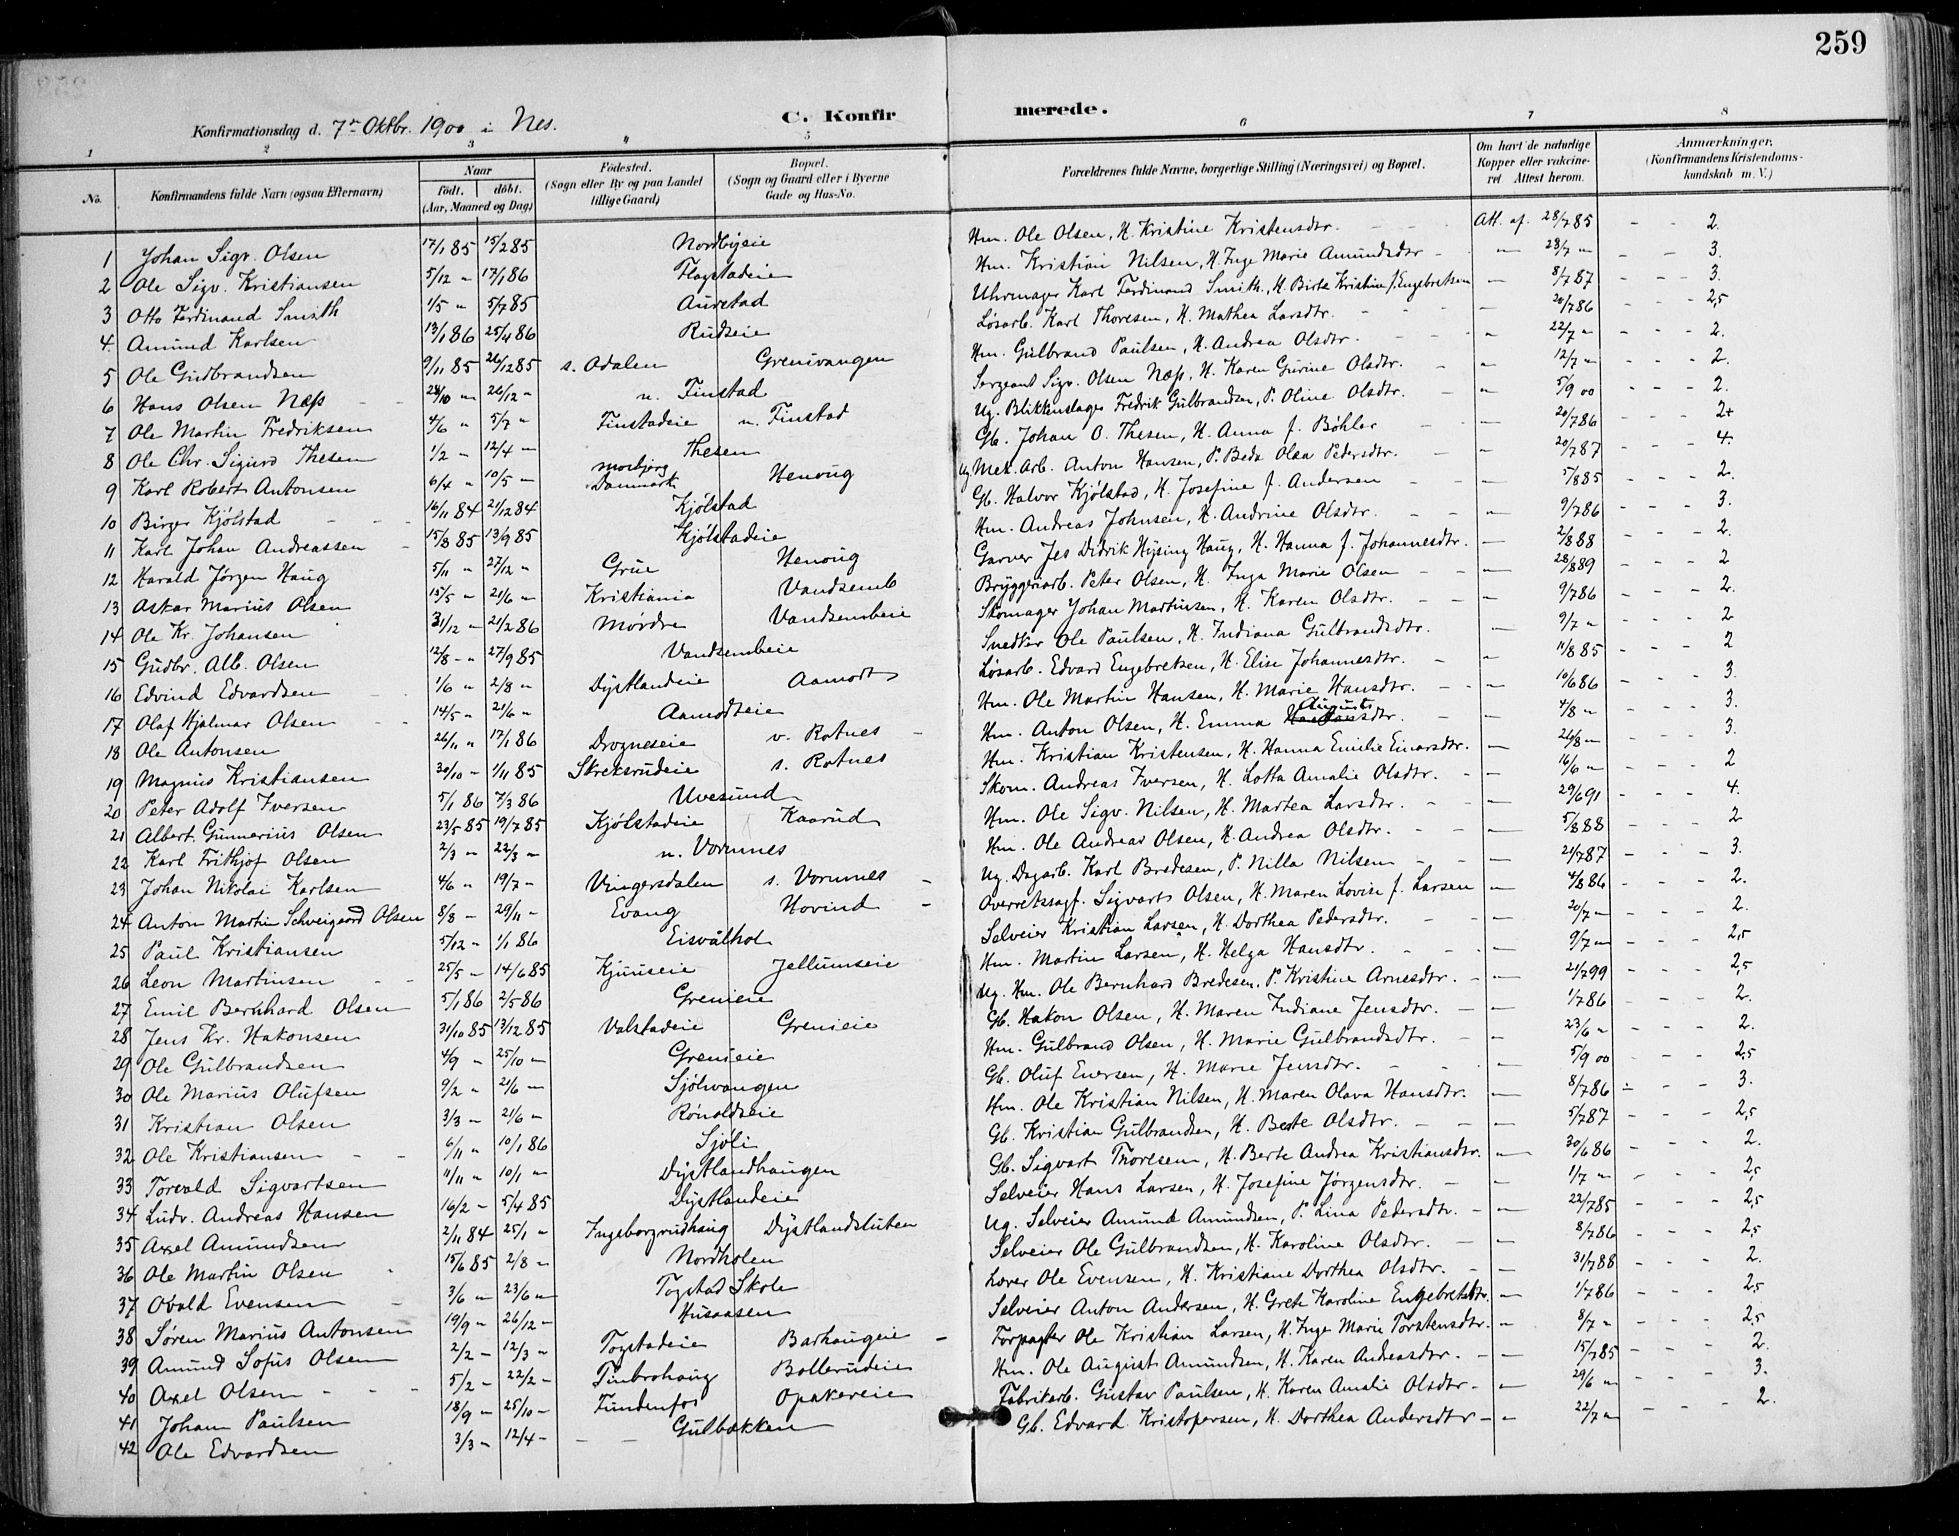 259
Konfirmationsdag d. 7de Oktbr. 1900 i Nes.
C. Konfirmerede.
1 2 3 4 5 6 7 8
No. Konfirmandens fulde Navn (ogsaa Efternavn) Naar födt. döbt. (Aar, Maaned og Dag) Födested. (Sogn eller By og paa Landet tillige Gaard) Bopæl. (Sogn og Gaard eller i Byerne Gade og Hus-No. Forældrenes fulde Navne, borgerlige Stilling (Næringsvei) og Bopæl. Om havt de naturlige Kopper eller vaccineret Attest herom. Anmærkninger. (Konfirmandens Kristendomskundskab m. V.)
1 Johan Sigv. Olsen 17/1 85 15/2 85 Nordbyeie Hm. Ole Olsen, H. Kristine Kristensdtr. Att. af. 28/7 85 - - 2.
2 Ole Sigv. Kristiansen 5/12 " 17/1 86 Flagstadeie Hm. Kristian Nilsen, H. Inge Marie Amundsdtr - " 28/7 " - - 3.
3 Otto Ferdinand Smith 1/5 " 5/7 85 Aurstad Uhrmager Karl Ferdinand Smith, H. Birte Kristine f. Engebretsen - 8/7 87 - - 3.
4. Amund Karlsen 13/1 86 25/4 86 Rudseie Løsarb. Karl Thoresen, H. Mathea Larsdtr. - 20/7 86 - - - 2,5
5 Ole Gudbrandsen 9/11 85 26/12 85 s. Odalen Grenivangen Hm. Gulbrand Paulsen, H. Andrea Olsdtr. " 22/7 " - - - 2.
6 Hans Olsen Næss 24/10 " 26/12 " n. Finstad Sergeant Sigv. Olsen Næss, H. Karen Gurine Olsdtr. " 12/7 " - - - 2.
7 Ole Martin Fredriksen 4/6 " 5/7 " Finstadeie n. Finstad Ug. Blikkenslager Fredrik Gulbrandsen, P. Oline Olsdtr. - " 5/9 00 - - - 2.
8 Ole Chr. Sigurd Thesen 1/2 - 12/4 - Thesen Gb. Johan O. Thesen, H. Anna f. Bøhler - 20/7 86 - - - 2+
9 Karl Robert Antonsen 6/4 " 10/5 - Danmark Henoug Ug. Mek. Arb. Anton Hansen, P. Beda Olea Pedersdtr. - - 20/7 87 - - - 4.
10 Birger Kjølstad 16/11 84 21/12 84 Kjølstad Gb. Halvor Kjølstad, H. Josefine f. Andersen - - 5/8 85 - - - 2.
11 Karl Johan Andreassen - 15/8 85 13/9 85 Kjølstadeie Hm. Andreas Johnsen, H. Andrine Olsdtr. - - " 9/7 86 - - - 3.
12 Harald Jørgen Haug 5/11 " 27/12 " Grue Henoug Garver Jes Didrik Hysing Haug, H. Hanna f. Johannesdtr. - 2/8 88 - - - 2.
13 Oskar Marius Olsen 15/5 " 21/6 " Kristiania Vandsemb Bryggeriarb. Peter Olsen, H. Inga Marie Olsen - - - 28/8 89 - - - 2
14 Ole Kr. Johansen 31/12 - 21/2 86 Mørdre Vandsembeie Skomager Johan Martinsen, H. Karen Olsdtr. - - - 9/7 86 - - - 2.
15 Gudbr. Alb. Olsen 12/8 - " 27/9 85 Vandsembeie Snedker Ole Paulsen, H. Indiana Gulbrandsdtr. - 9/7 " - - - 2
16 Edvind Edvardsen 1/6 " 2/8 " Dystlandeie Aamodt Løsarb. Edvard Engebretsen, H. Elise Johannesdtr. - - 11/8 85 - - - 2
17 Olaf Hjalmar Olsen 14/5 - 21/6 " Aamodteie Hm. Ole Martin Hansen, H. Marie Hansdtr. - - - 10/6 86 - - - 3.
18 Ole Antonsen 26/11 " 17/1 86 Drogneseie v. Rotnes - Hm. Anton Olsen, H. Emma August - - 4/8 " - - - 3.
19 Magnus Kristiansen 30/10 - 1/11 85 Skreksrudeie s. Rotnes Hm. Kristian Kristensen, H. Hanna Emilie Einarsdtr. - 26/8 - - - - 3
20 Peter Adolf Iversen 5/1 86 7/3 86 Uvesund Skom. Andreas Iversen, H. Lotta Amalie Olsdtr. - - 16/6 " - - - 2
21 Albert Gunnerius Olsen 23/5 85 19/7 85 Kjølstadeie Kaarud Hm. Ole Sigv. Nilsen, H. Martea Larsdtr. - - 29/6 91 - - - 4.
22 Karl Frithjof Olsen 2/3 " 22/3 - n. Vormnes Hm. Ole Andreas Olsen, H. Andrea Olsdtr. - - - 5/8 88 - - - 2
23 Johan Nikolai Karlsen 4/6 " 19/7 - Vingersdalen s. Vormnes - Ug. Dagarb. Karl Bredesen, P. Nilla Nilsen - - - 21/7 87 - - - 3.
24 Anton Martin Schweigaard Olsen 8/8 - 29/11 - Evang Hovind - Overretssagf. Sigvart Olsen, H. Maren Lovise f. Larsen - 4/8 86 - - - 2.
25 Paul Kristiansen 5/12 - 1/1 86 Eisvalhol Selveier Kristian Larsen, H. Dorthea Pedersdtr. - - - 20/7 - - - - 2.
26 Leon Martinsen 25/5 - 14/6 85 Kjuuseie Jellumseie Hm. Martin Larsen, H. Helga Hansdtr. - - - 9/7 " - - - 2,5
27 Emil Bernhard Olsen 5/1 86 2/5 86 Grenieie Ug. Hm. Ole Bernhard Bredesen, P. Kristine Arnesdtr. - - 21/7 99 - - - 2,5
28 Jens Kr. Hakonsen 31/10 85 13/12 85 Valstadeie Grenieie Gb. Hakon Olsen, H. Maren Indiane Jensdtr. - - 1/7 86 - - - 2.
29 Ole Gulbrandsen 4/9 - 25/10 - Grenieie Hm. Gulbrand Olsen, H. Marie Gulbrandsdtr. - - 23/6 " - - - 2.
30 Ole Marius Olufsen 9/2 " 21/6 - Sjølivangen Gb. Oluf Eversen, H. Marie Jensdtr. - - - 5/9 00 - - - 2,5
31 Kristian Olsen 3/3 - 21/6 - Ronoldseie Hm. Ole Kristian Nilsen, H. Maren Olava Hansdtr. - 8/7 86 - - - 3.
32 Ole Kristiansen - - 6/11 " 10/1 86 Sjøli Gb. Kristian Gulbrandsen, H. Berte Olsdtr. - - - 5/7 87 - - - 2,5
33 Torvald Sigvartsen 11/11 " 10/1 " Dystlandhaugen Gb. Sigvart Thoresen, H. Berte Andrea Kristiansdtr. - 30/6 86 - - - 2.
34 Ludv. Andreas Hansen 16/2 - 5/4 85 Dystlandeie Selveier Hans Larsen, H. Josefine Jørgensdtr. - - 1/7 " - - - 2,5
35 Axel Amundsen 2/11 84 25/1 " Ingeborgrudhaug Dystlandsluten Ug. Selveier Amund Amundsen, P. Lina Pedersdtr. - - 22/7 85 - - - 2,5
36 Ole Martin Olsen 15/6 85 2/8 " Nordholen Selveier Ole Gulbrandsen, H. Karoline Olsdtr. - - 8/7 86 - - - 2,5
37 Ovald Evensen 3/6 " 23/6 " Togstad Skole Lærer Ole Evensen, H. Kristiane Dorthea Olsdtr. - - 31/7 88 - - - 2.
38 Søren Marius Antonsen 19/9 - 26/12 - Husaasen Selveier Anton Andersen, H. Grete Karoline Engebretsdtr. " 1/7 86 - - - 2,5
39 Amund Sofus Olsen 2/2 - 12/3 " Togstadeie Barhaugeie - Forpagter Ole Kristian Larsen, H. Inge Marie Torstensdtr. " 8/7 " - - - 2,5
40 Axel Olsen - - - 5/2 - 22/2 - Finbrohaug Bollerudeie Hm. Ole August Amundsen, H. Karen Andreasdtr. - - 15/7 85 - - - 2.
41 Johan Paulsen 18/9 - 25/10 - Fundenfos Opakereie Fabrikarb. Gustav Paulsen, H. Karen Amalie Olsdtr - - 29/6 " - - - 3.
42 Ole Edvardsen 3/3 - 12/4 - Gulbakken Gb. Edvard Kristopersen, H. Dorthea Andersdtr - " 22/7 " - - - 2.